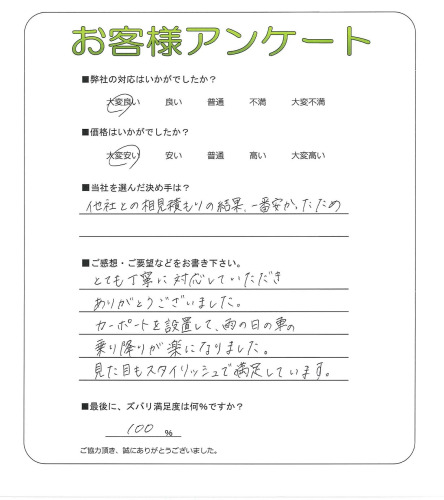 お客様アンケート
■弊社の対応はいかがでしたか?
大変良い 良い 普通 不満 大変不満
■価格はいかがでしたか?
大変安い 安い 普通 高い 大変高い
■当社を選んだ決め手は?
他社との相見積もりの結果、一番安かったため
■ご感想・ご要望などをお書き下さい。
とても丁寧に対応していただき
ありがとうございました。
カーポートを設置して、雨の日の車の
乗り降りが楽になりました。
見た目もスタイリッシュで満足しています。
■最後に、ズバリ満足度は何%ですか?
100 %
ご協力頂き、誠にありがとうございました。